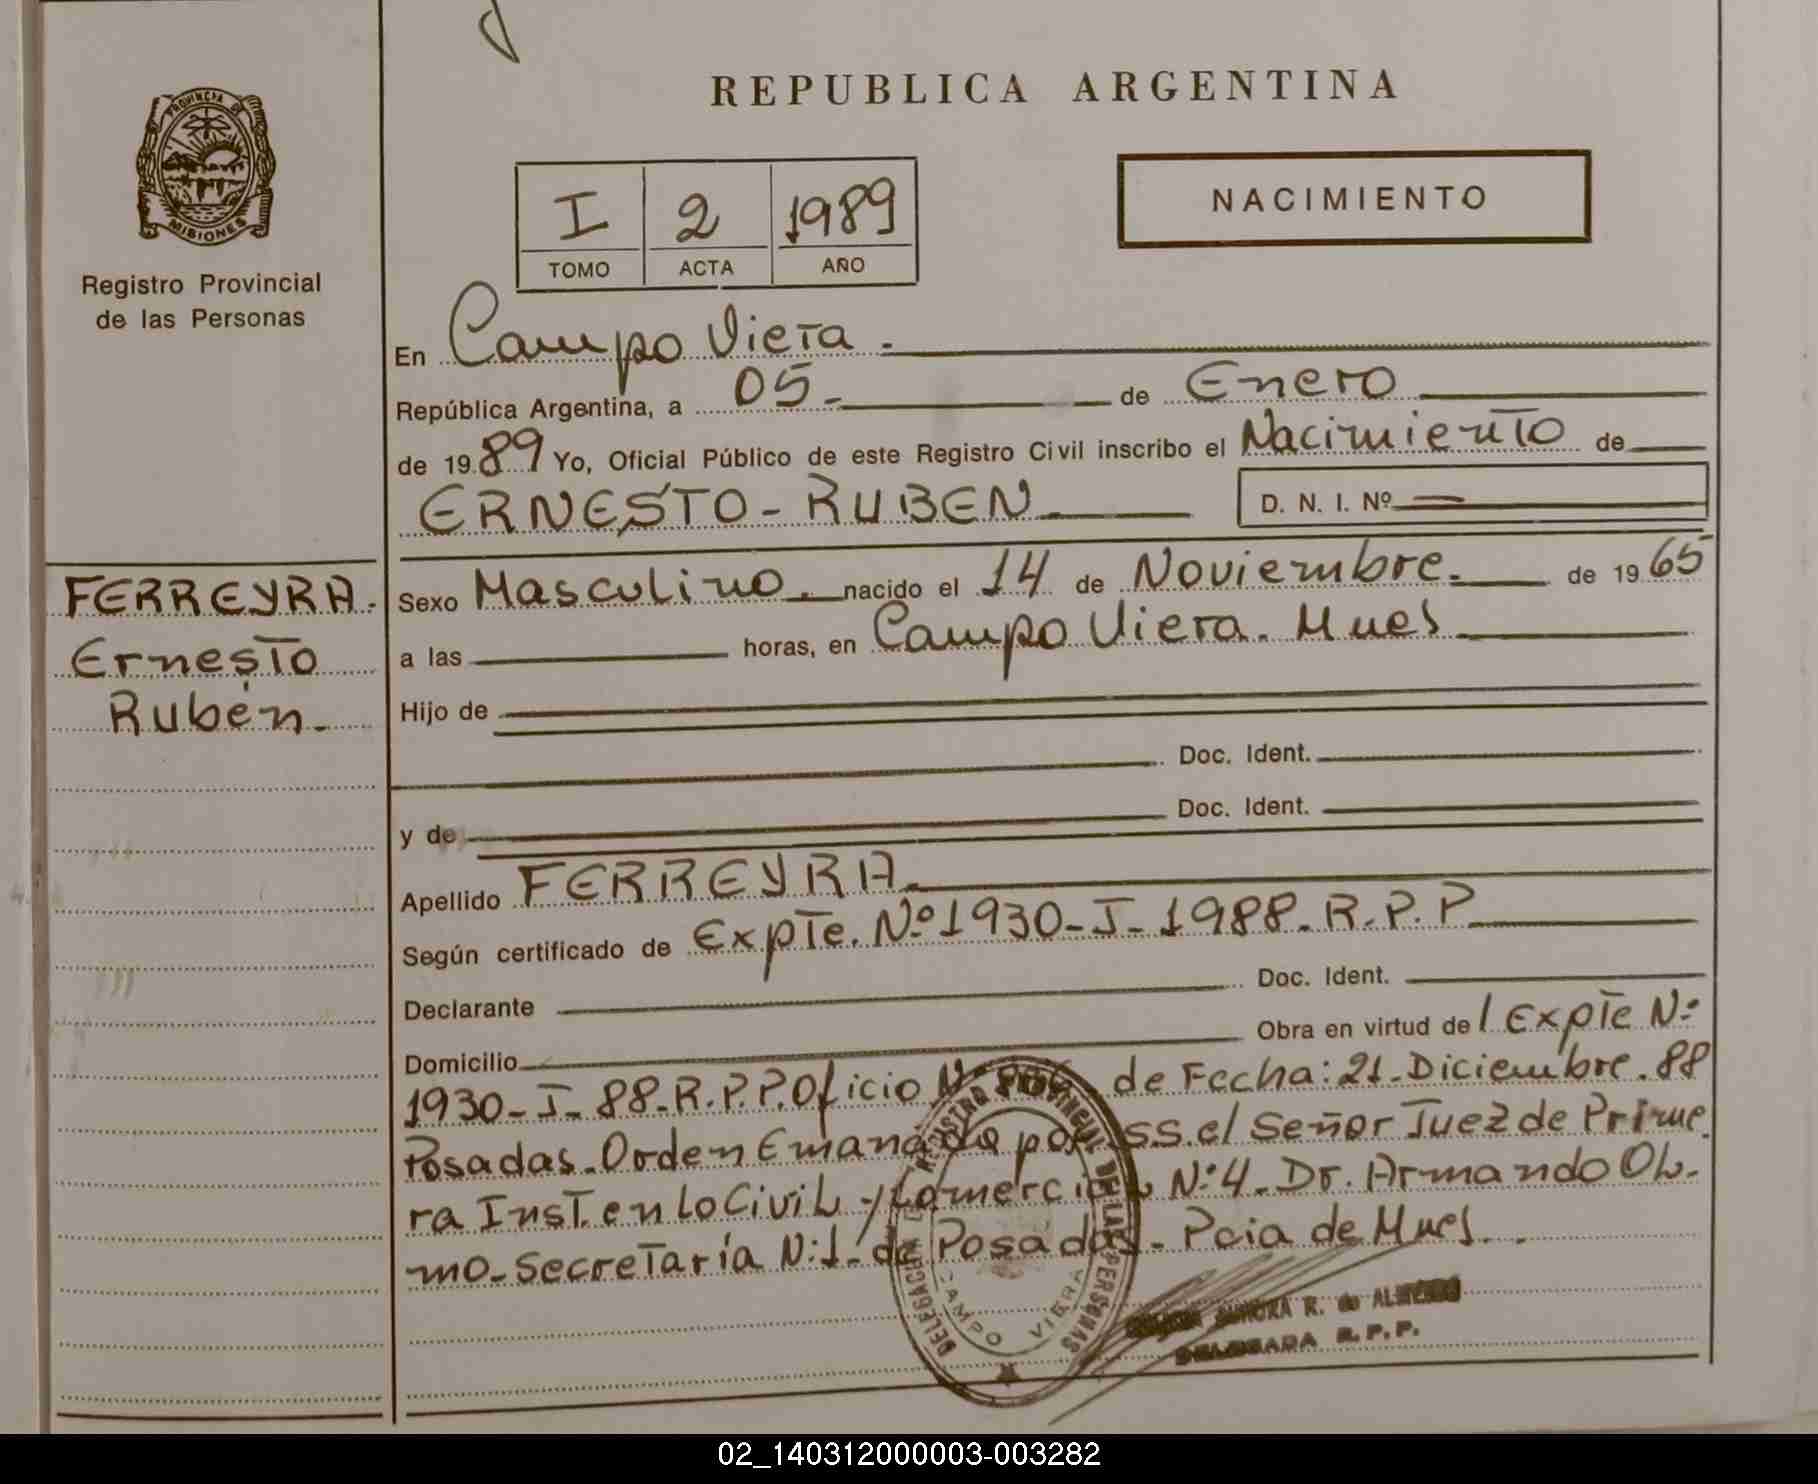 REPUBLICA ARGENTINA
PROVINCIA DE
MISIONES
Registro Provincial
de las Personas
NACIMIENTO
I 2 1989
TOMO ACTA AÑO
En Campo Viera.
República Argentina, a 05 de Enero
de 1989 Yo, Oficial Público de este Registro Civil inscribo el Nacimiento de
ERNESTO-RUBEN D. N. I. Nº
FERREYRA.
Ernesto
Rubén.
Sexo Masculino. nacido el 14 de Noviembre. de 1965
a las horas, en Campo Viera. Mnes
Hijo de
Doc. Ident.
Doc. Ident.
y de
Apellido FERREYRA
Según certificado de Expte. Nº 1930-I-1988. R.P.P
Doc. Ident.
Declarante
Obra en virtud de / Expte Nº
Domicilio
1930-I-88-R.P.P. Oficio Nº de Fecha: 21-Diciembre.88
Posadas-Orden Emanado por S.S. el Señor Juez de Prime
ra Inst. en lo Civil y Comercial Nº 4. Dr. Armando Ol-
mo-Secretaría N:1-de Posadas-Pcia de Mnes.
REGISTRO PROVINCIAL DE LAS PERSONAS
DELEGACION
CAMPO VIERA
R. de
DELEGADA R.P.P.
02_140312000003-003282